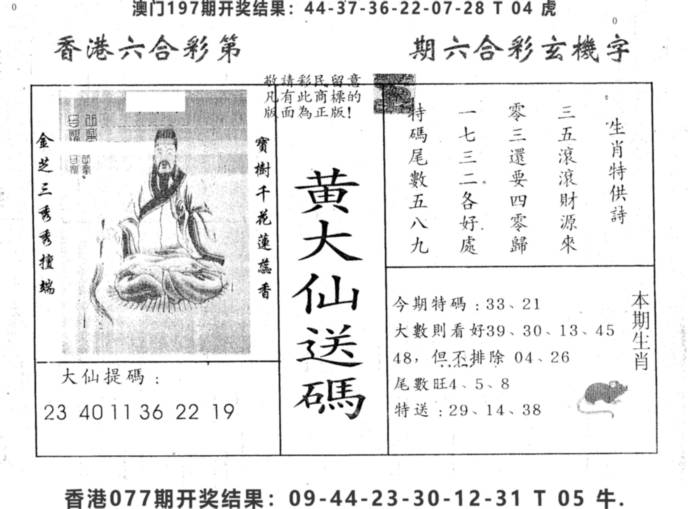 澳门197期开奖结果：44-37-36-22-07-28 T 04 虎
香港六合彩第
期六合彩玄機字
敬請彩民留意
凡有此商標的
版面為正版！
金芝三秀秀擅端
寶樹千花蓮蕊香
大仙提碼：
23 40 11 36 22 19
黄大仙送碼
生肖特供詩
三五滾滾財源來
零三還要四零歸
一七三二各好處
特碼尾數五八九
今期特碼：33、21
大數則看好39、30、13、45
48，但不排除 04、26
尾數旺4、5、8
特送：29、14、38
本期生肖
香港077期开奖结果：09-44-23-30-12-31 T 05 牛.